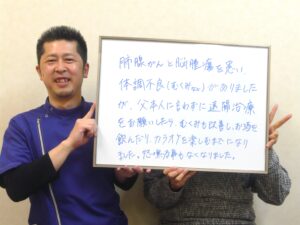 肺腺がんと脳腫瘍を患い
体調不良(むくみなど)がありましたが
が、父本人に言わずに遠隔治療
をお願いしたら、むくみも改善し、お酒を
飲んだり カラオケを楽しむまでになり
ました。 事もなくなりました。